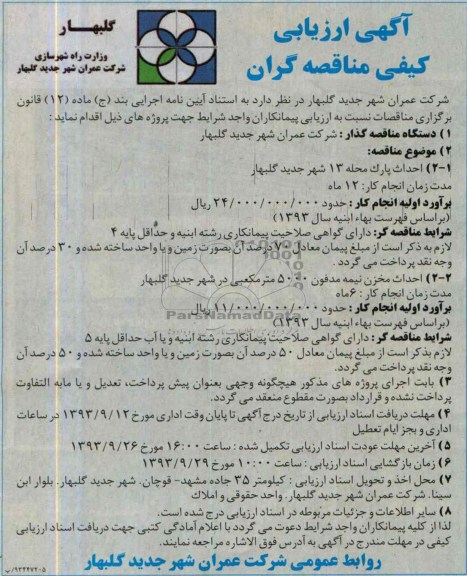 آگهی ارزیابی
کیفی مناقصه گران
گلبهار
وزارت راه شهرسازی
شرکت عمران شهر جدید گلبهار
شرکت عمران شهر جدید گلبهار در نظر دارد به استناد آیین نامه اجرایی بند (ج) ماده (۱۲) قانون
برگزاری مناقصات نسبت به ارزیابی پیمانکاران واجد شرایط جهت پروژه های ذیل اقدام نماید :
۱) دستگاه مناقصه گذار : شرکت عمران شهر جدید گلبهار
۲) موضوع مناقصه:
۲-۱) احداث پارك محله ۱۳ شهر جدید گلبهار
مدت زمان انجام کار: ۱۲ ماه
برآورد اولیه انجام کار : حدود ۲۴/۰۰۰/۰۰۰/۰۰۰ ریال
(براساس فهرست بهاء ابنیه سال ۱۳۹۳)
شرایط مناقصه گر: دارای گواهی صلاحیت پیمانکاری رشته ابنیه و حداقل پایه ۴
لازم به ذکر است از مبلغ پیمان معادل ۷۰ درصد آن بصورت زمین و یا واحد ساخته شده و ۳۰ درصد آن
وجه نقد پرداخت می گردد .
۲-۲) احداث مخزن نیمه مدفون ۵۰۰۰ مترمکعبی در شهر جدید گلبهار
مدت زمان انجام کار : ۶ ماه
برآورد اولیه انجام کار : حدود ۱۱/۰۰۰/۰۰۰/۰۰۰ ریال
(براساس فهرست بهاء ابنیه سال ۱۳۹۳)
شرایط مناقصه گر: دارای گواهی صلاحیت پیمانکاری رشته ابنیه و یا آب حداقل پایه ۵
لازم بذکر است از مبلغ پیمان معادل ۵۰ درصد آن بصورت زمین و یا واحد ساخته شده و ۵۰ درصد آن
وجه نقد پرداخت می گردد.
۳) بابت اجرای پروژه های مذکور هیچگونه وجهی بعنوان پیش پرداخت، تعدیل و یا مابه التفاوت
پرداخت نشده و قرارداد بصورت مقطوع منعقد می گردد.
۴) مهلت دریافت اسناد ارزیابی از تاریخ درج آگهی تا پایان وقت اداری مورخ ۱۳۹۳/۹/۱۲ در ساعات
اداری و بجز ایام تعطیل
۵) آخرین مهلت عودت اسناد ارزیابی تکمیل شده : ساعت ۱۶:۰۰ مورخ ۱۳۹۳/۹/۲۶
۶) زمان بازگشایی اسناد ارزیابی : ساعت ۱۰:۰۰ مورخ ۱۳۹۳/۹/۲۹
۷) محل اخذ و تحویل اسناد ارزیابی : کیلومتر ۳۵ جاده مشهد- قوچان، شهر جدید گلبهار، بلوار ابن
سینا، شرکت عمران شهر جدید گلبهار، واحد حقوقی و املاك
۸) سایر اطلاعات و جزئیات مربوطه در اسناد ارزیابی درج شده است.
لذا از کلیه پیمانکاران واجد شرایط دعوت می گردد با اعلام آمادگی کتبی جهت دریافت اسناد ارزیابی
کیفی در مهلت مندرج در آگهی به آدرس فوق الاشاره مراجعه نمایند.
روابط عمومی شرکت عمران شهر جدید گلبهار